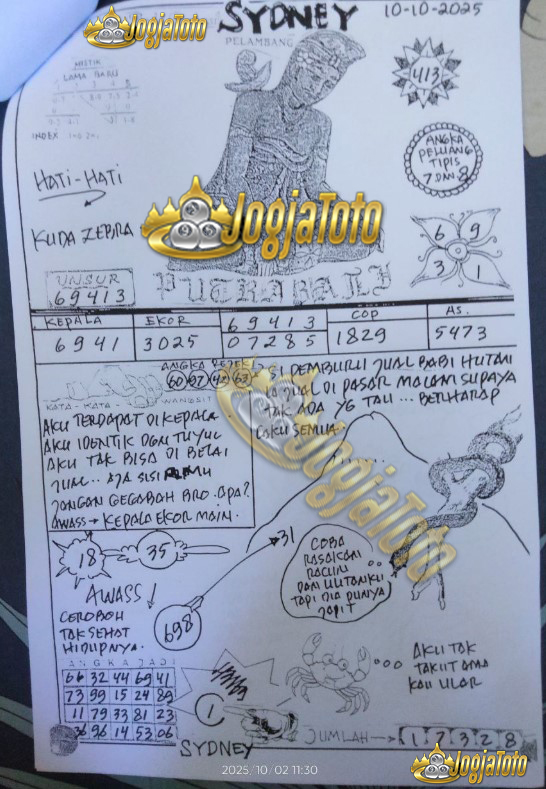 JogjaToto
SYDNEY
10-10-2025
PELAMBANG
MISTIK
LAMA BARU
INDEX
413
ANGKA
PELUANG
TIPIS
7 DAN 8
HATI-HATI
KUDA ZEBRA
JogjaToto
6 9
3 1
UNSUR
69413
PUTRA BALI
KEPALA
6941
EKOR
3025
69413
07285
COP
1829
AS.
5473
60 97 42 63
KATA - KATA WANGSIT
AKU TERDAPAT DI KEPALA
AKU IDENTIK DGN TUYUL
AKU TAK BISA DI BELAI
JANGAN GEGABAH BRO. APA?
AWASS → KEPALA EKOR MAIN.
SI PEMBURU JUAL BABI HUTAN
IA JUAL DI PASAR MALAM SUPAYA
TAK ADA YG TAU ... BERHARAP
LAKU SEMUA
JogjaToto
18
35
31
AWASS!
CEROBOH
TAK SEHAT
HIDUPNYA.
698
COBA
RASAKAN
RACUN
DAN LILITANKU
TAPI DIA PUNYA
JAPIT
AKU TAK
TAKUT AMA
KAU ULAR
ANGKA JADI
66 32 44 69 41
73 99 15 24 89
11 79 33 81 23
36 96 14 53 06
1
SYDNEY
JUMLAH → 1 7 3 2 8
2025/10/02 11:30
JogjaToto